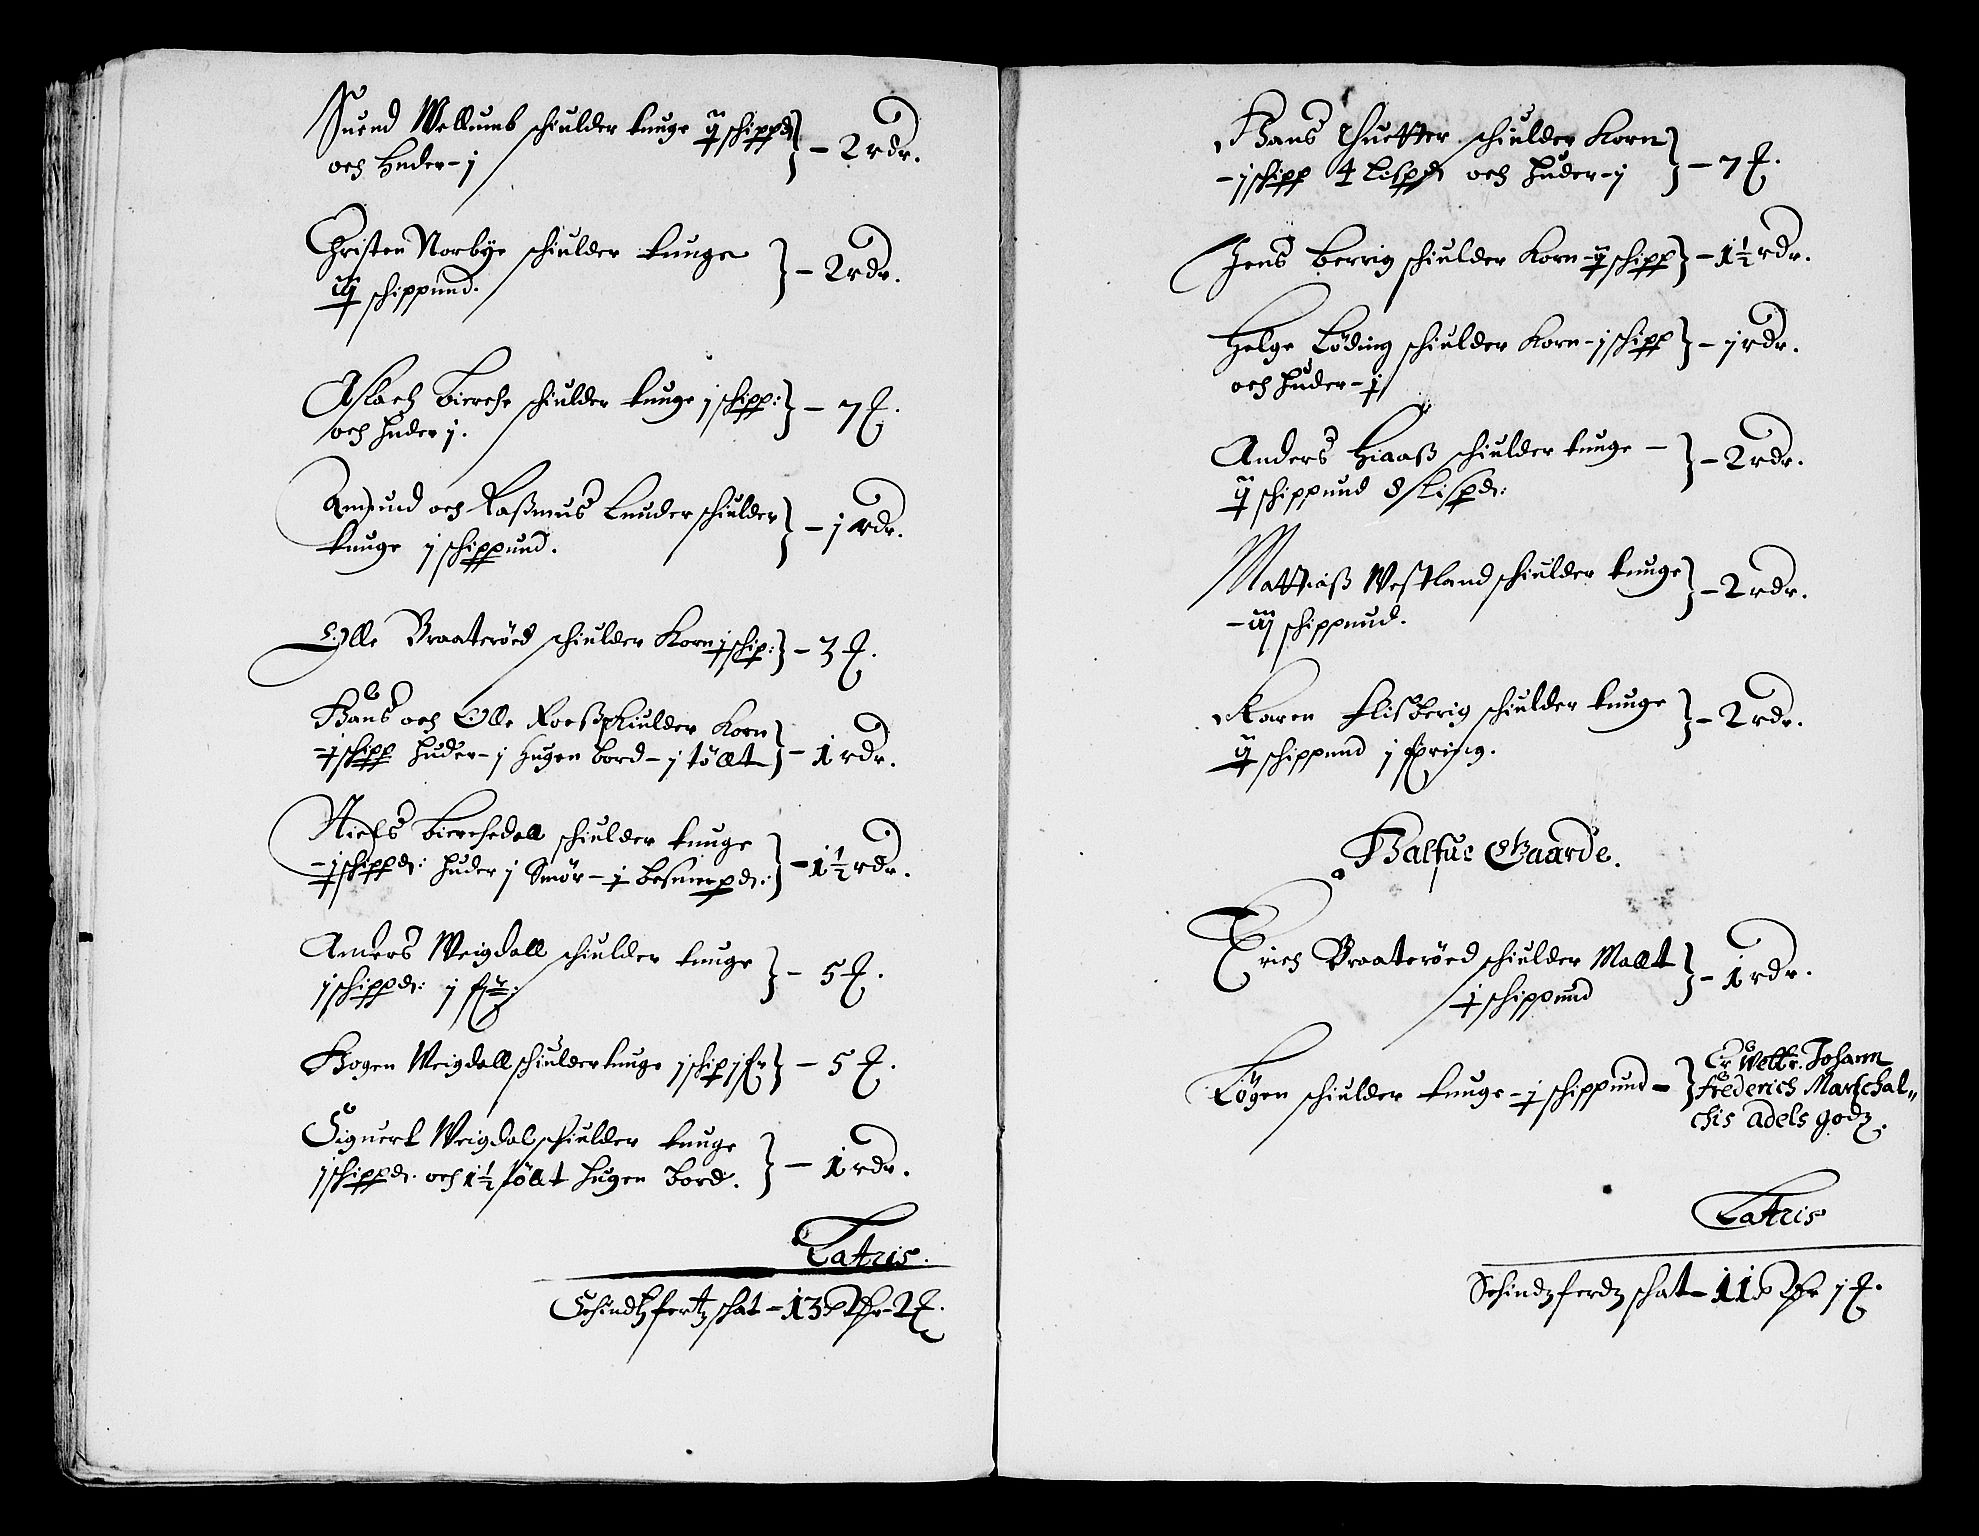 Suend Mellumb schiulder tunge ij schippd
och Huder - j } - 2 rdr.
Christen Norbÿe schiulder tunge
iij schippund. } - 2 rdr.
Aslach Bierche schiulder tunge j schipp:
och huder j. } - 7 £.
Amund och Raßmus Lunder schiulder
tunge j schippund. } - j rdr.
Olle Braaterøed schiulder Korn j schip: } - 3 £.
Hans och Olle Roeß schiulder Korn
- j schipp huder - j Hugen bord - j töllt } - 1 rdr.
Niels Bierchedall schiulder tunge
- j schippd: huder j Smör - j besmerpd: } - 1½ rdr.
Anders Weigdall schiulder tunge
j schippd: j fr: } - 5 £.
Hogen Weigdall schiulder tunge j schip j fr } - 5 £.
Siguert Weigdal schiulder tunge
j schippd. och 1½ töllt hugen bord. } - 1 rdr.
Latris.
Schindtz fertz schat - 13 - 2 £.
Hans Thuetter schiulder Korn
- j schipp 4 Lispd och huder - j } - 7 £.
Jens Berrig schiulder Korn - ij schipp } - 1½ rdr.
Helge Löding schiulder Korn - j schipp
och huder - j } - j rdr.
Anders Hiaaß schiulder tunge -
ij schippund 8 Lispd: } - 2 rdr.
Matthiaß Westland schiulder tunge
- iij schippund. } - 2 rdr.
Karen Flisberig schiulder tunge
ij schippund j fering. } - 2 rdr.
Halfue Gaarde.
Erich Braaterøed schiulder Mallt
j schippund } - 1 rdr.
Lögen schiulder tunge - j schippund - } Er Welb. Johann
Frederich Marschal-
chis adels godz.
Latris
Schindz ferdz schat - 11 j £.